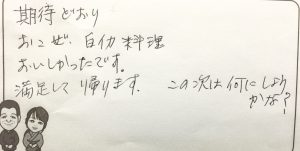 期待どおり
おこぜ、白イカ料理
おいしかったです。
満足して帰ります。 この次は何にしよう
かな?